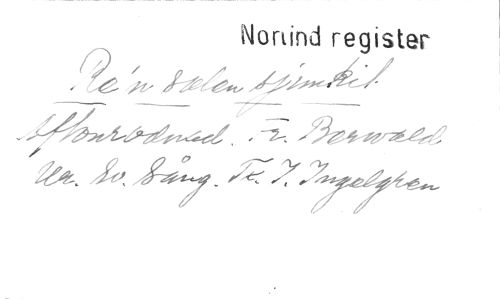 Norlind register
Re'n solen sjunkit.
Aftonrodnad. Fr. Berwald
Ur. Sv. Sång. Tk. J. Ingelgren